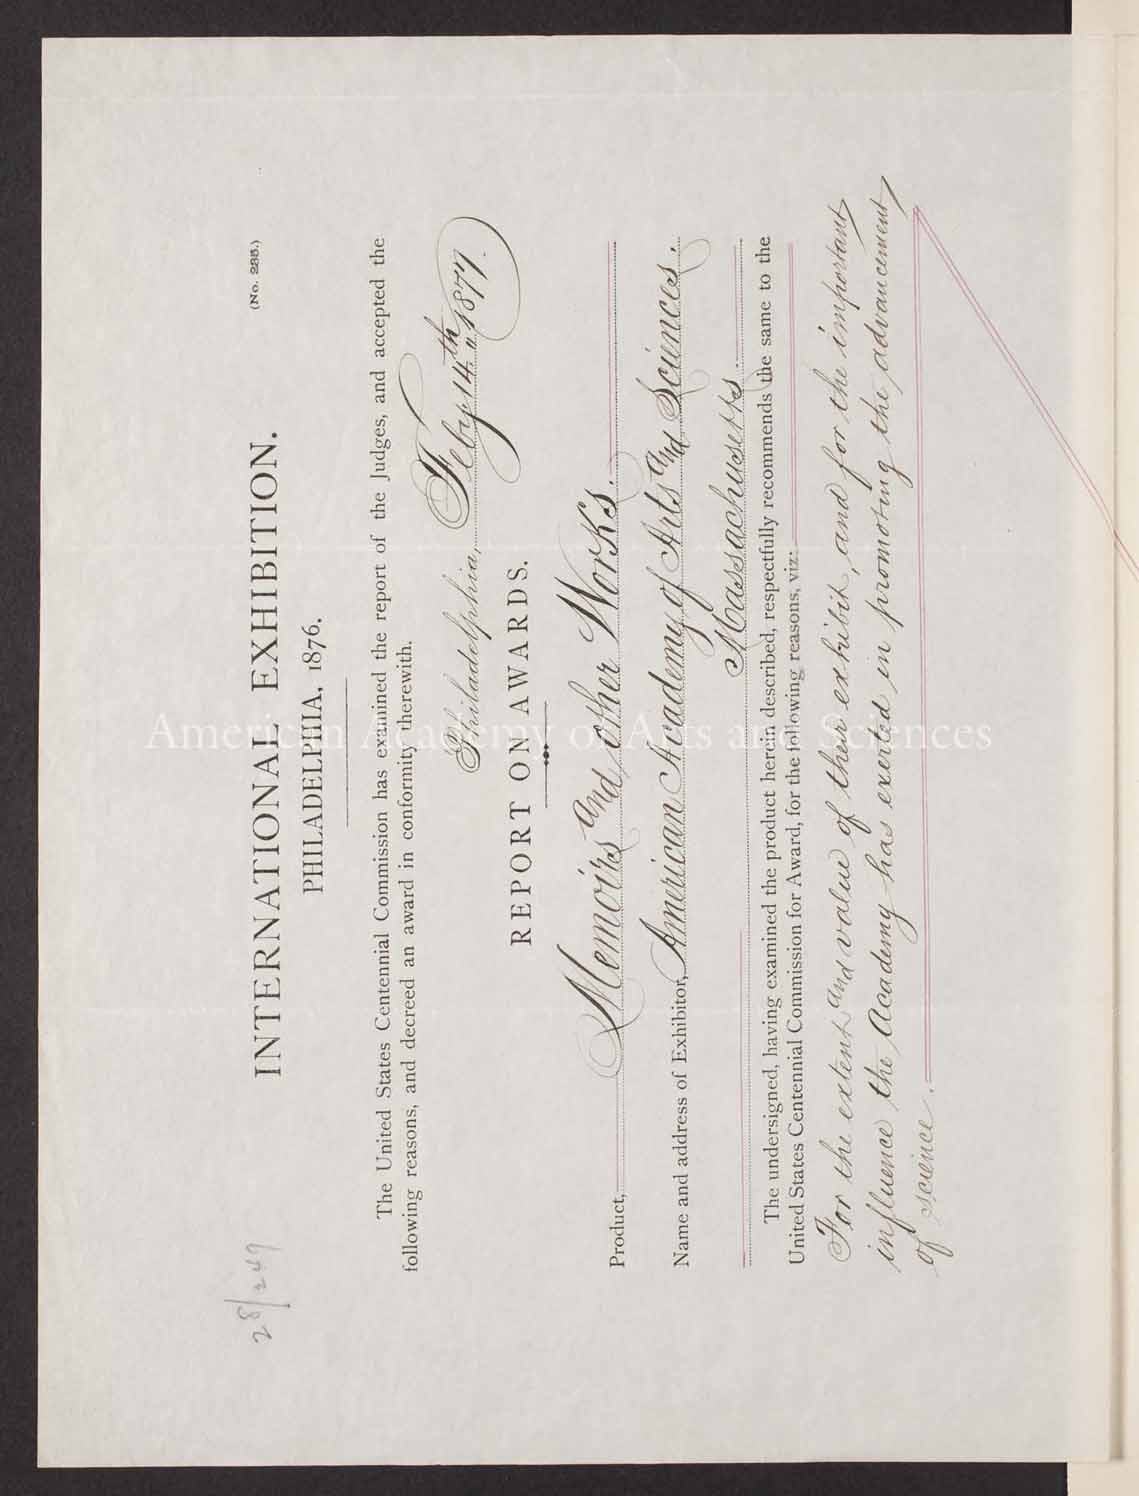 28/249
(No. 235.)
INTERNATIONAL EXHIBITION.
PHILADELPHIA, 1876.
The United States Centennial Commission has examined the report of the Judges, and accepted the
following reasons, and decreed an award in conformity therewith.
Philadelphia, Feby 14th, 1877.
REPORT ON AWARDS.
Product, Memoirs and other Works.
Name and address of Exhibitor, American Academy of Arts and Sciences.
Massachusetts.
The undersigned, having examined the product herein described, respectfully recommends the same to the
United States Centennial Commission for Award, for the following reasons, viz:
For the extent and value of their exhibit, and for the important
influence the Academy has exerted in promoting the advancement
of science.
American Academy of Arts and Sciences